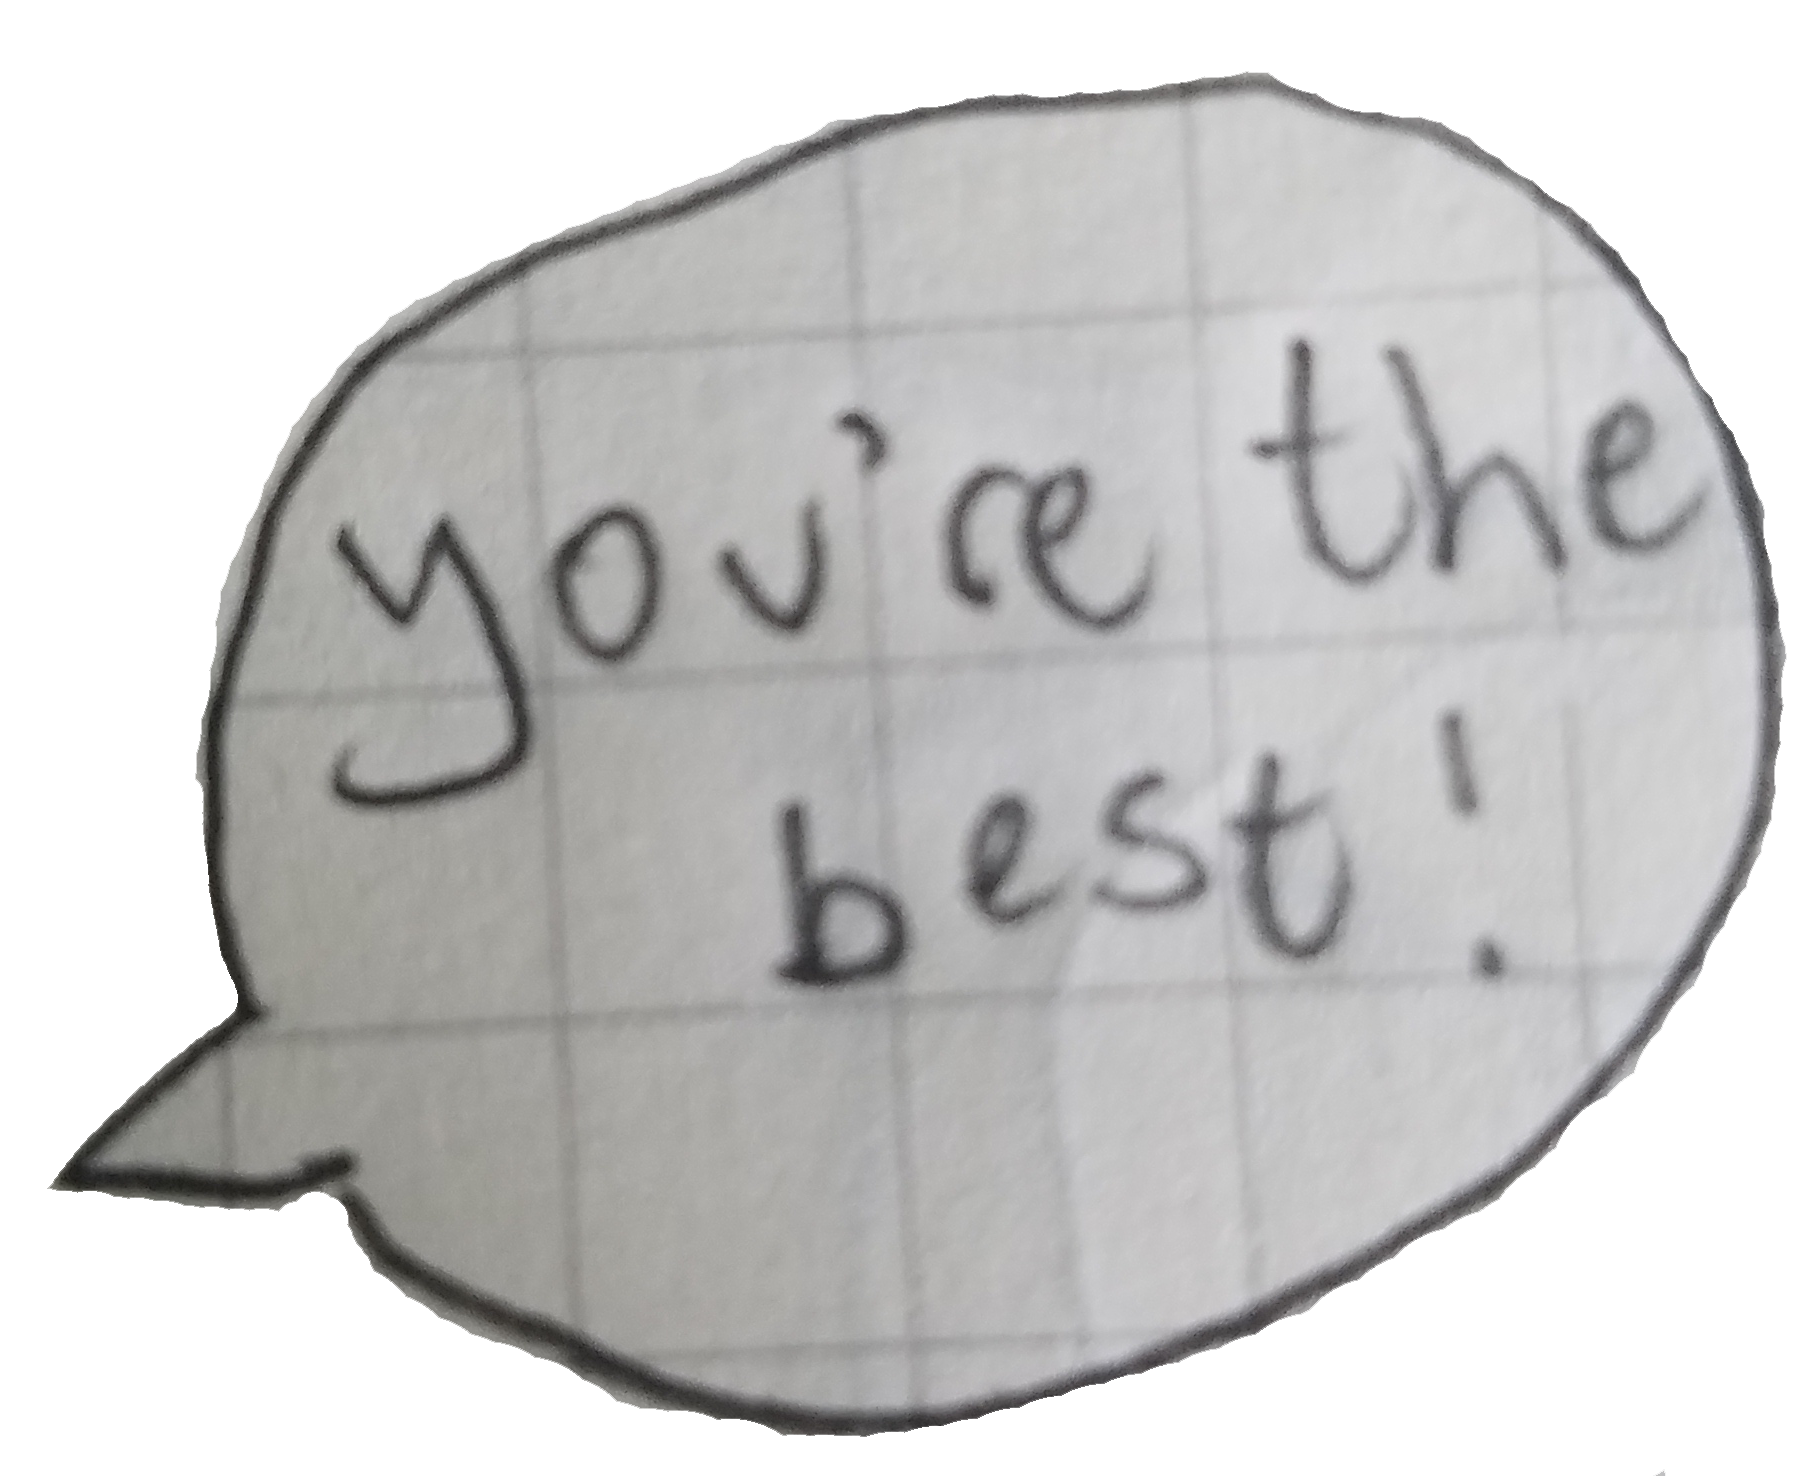 you're the
best!